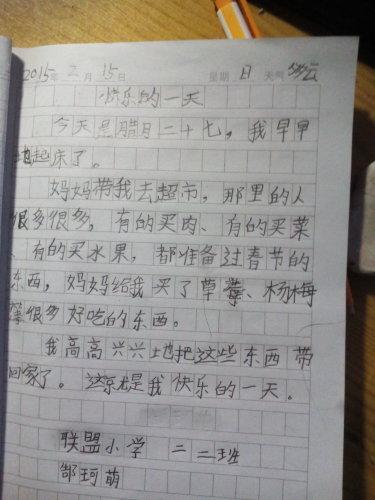 2015年2月15日 星期日 天气多云
快乐的一天
今天是腊月二十七，我早早
地起床了。
妈妈带我去超市，那里的人
很多很多，有的买肉、有的买菜
、有的买水果，都准备过春节的
东西，妈妈给我买了草莓、杨梅
等很多好吃的东西。
我高高兴兴地把这些东西带
回家了。这就是我快乐的一天。
联盟小学 二二班
郜珂萌